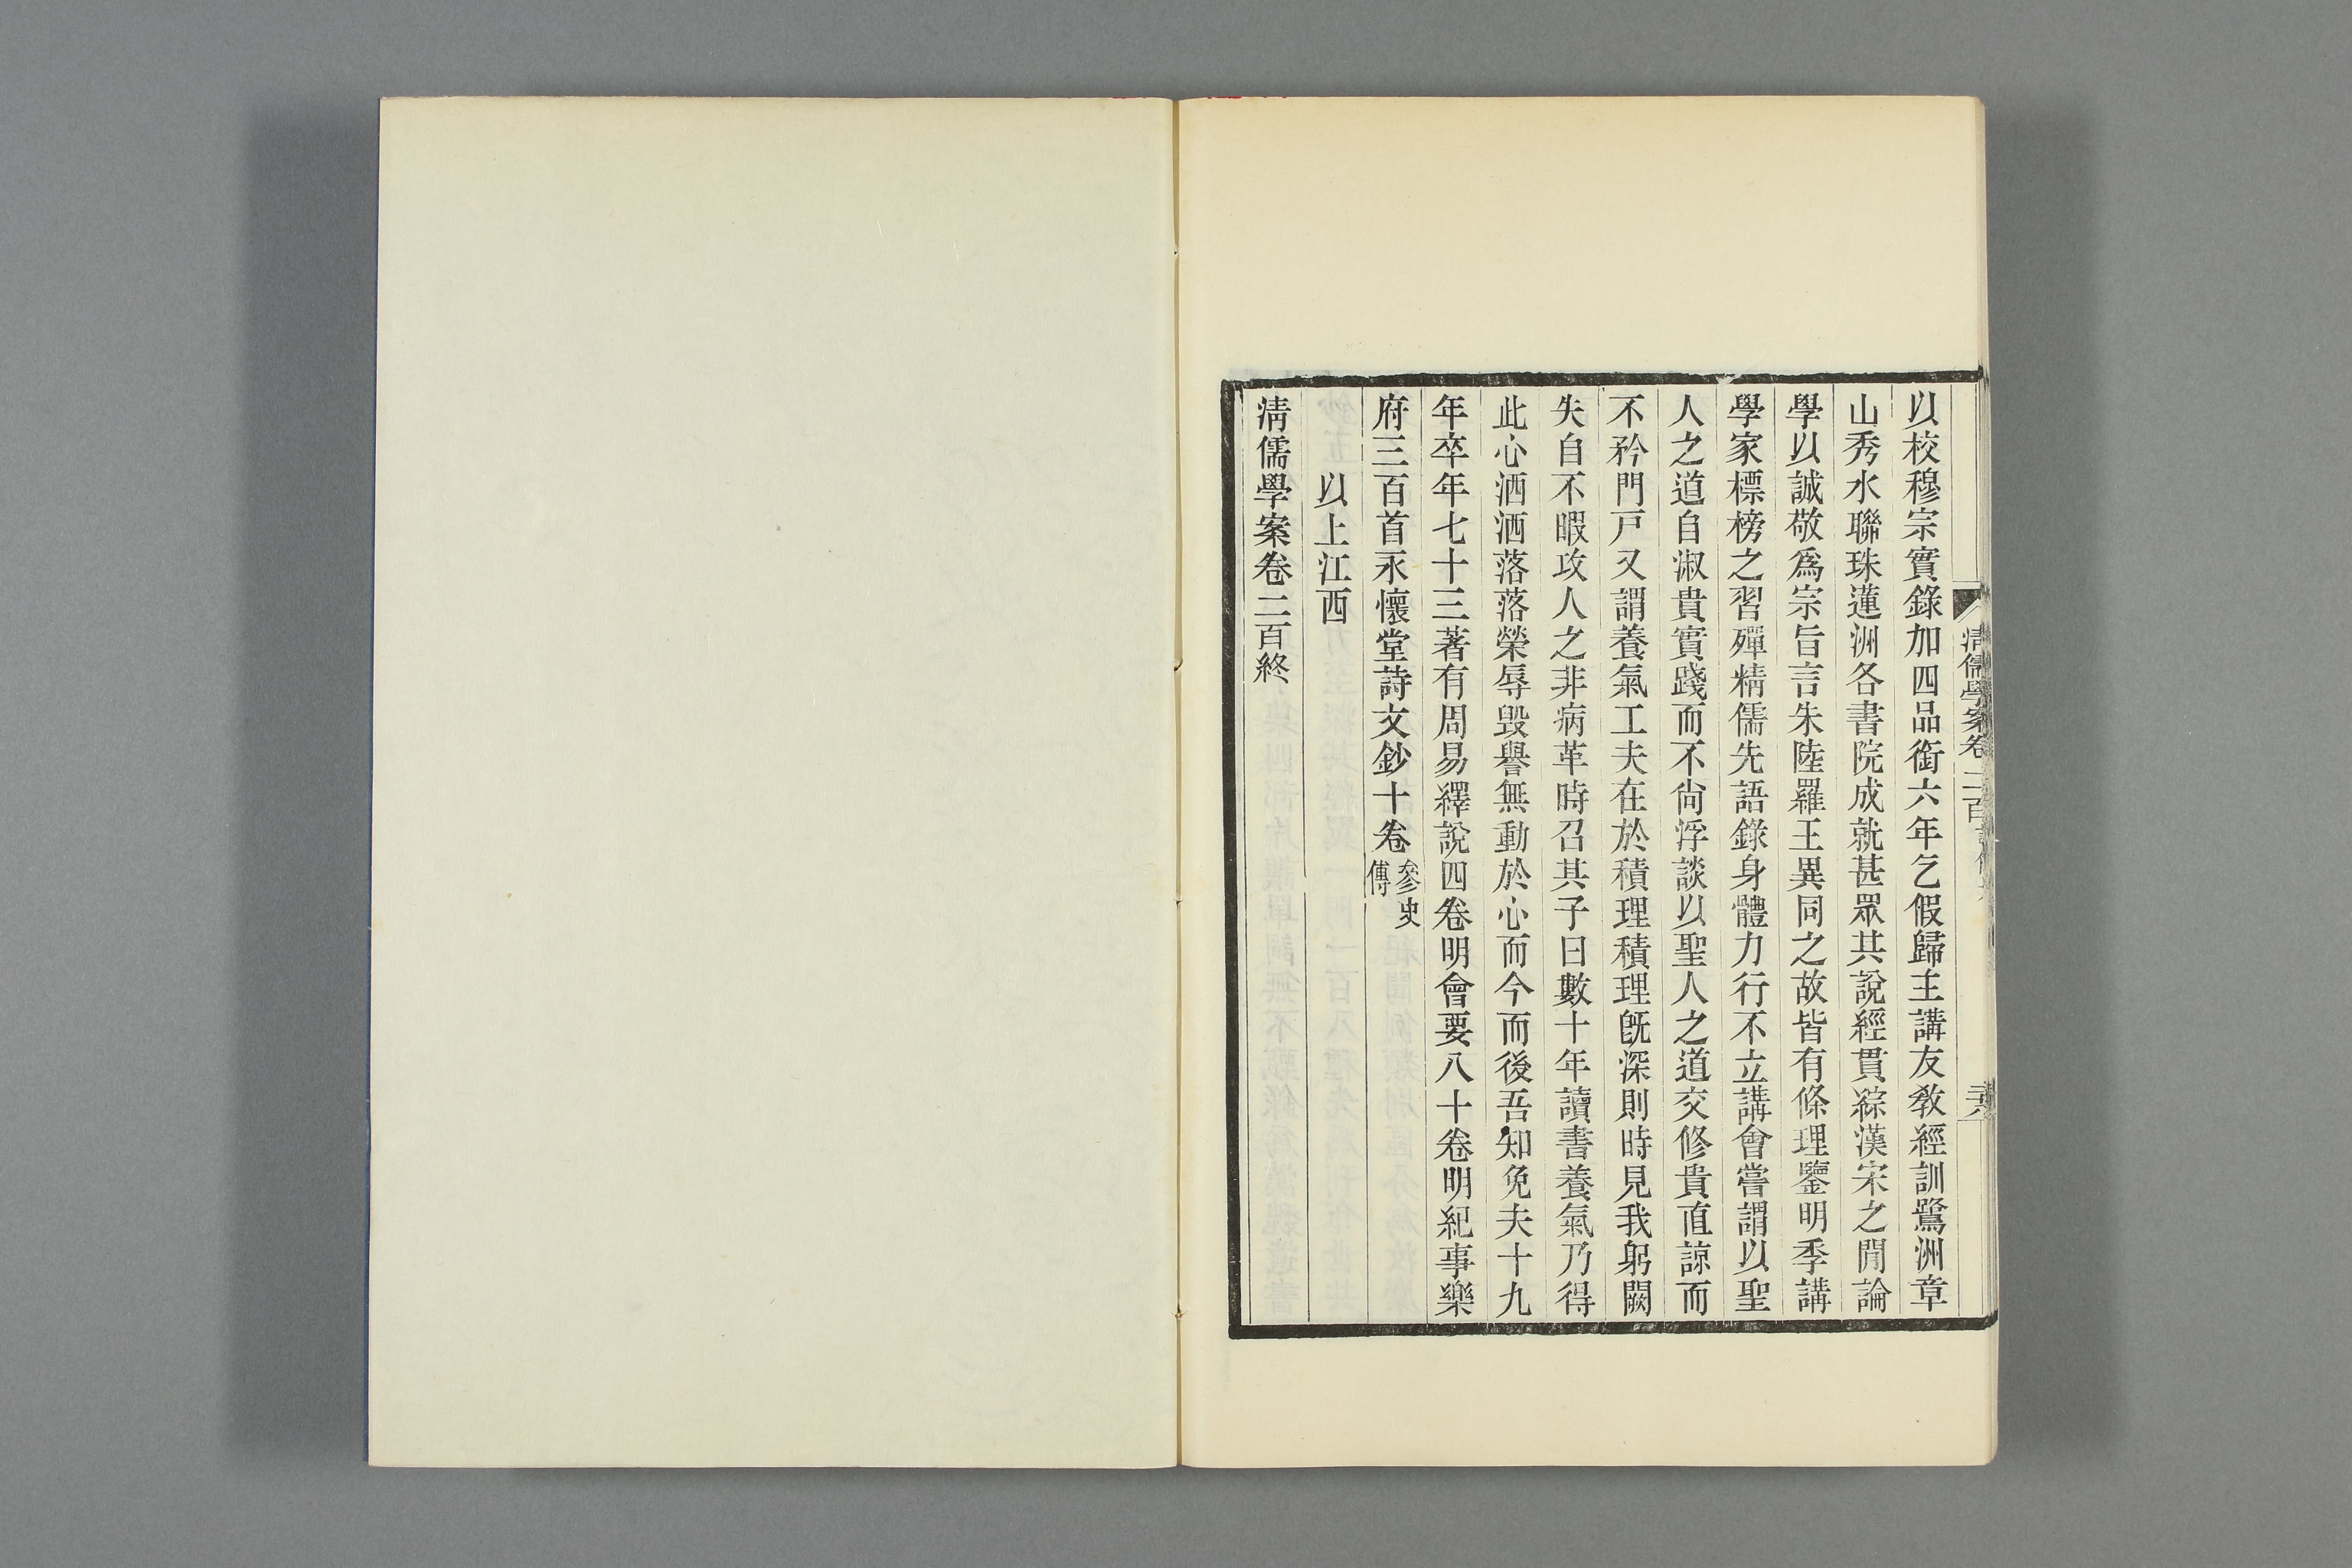 清儒學案卷二百
六
以校穆宗實錄加四品銜六年乞假歸主講友敎經訓鷺洲章
山秀水聯珠蓮洲各書院成就甚眾其說經貫綜漢宋之閒論
學以誠敬爲宗旨言朱陸羅王異同之故皆有條理鑒明季講
學家標榜之習殫精儒先語錄身體力行不立講會嘗謂以聖
人之道自淑貴實踐而不尙浮談以聖人之道交修貴直諒而
不矜門戸又謂養氣工夫在於積理積理旣深則時見我躬闕
失自不暇攻人之非病革時召其子曰數十年讀書養氣乃得
此心洒洒落落榮辱毀譽無動於心而今而後吾知免夫十九
年卒年七十三著有周易繹說四卷明會要八十卷明紀事樂
府三百首永懷堂詩文鈔十卷參史
傳
以上江西
清儒學案卷二百終